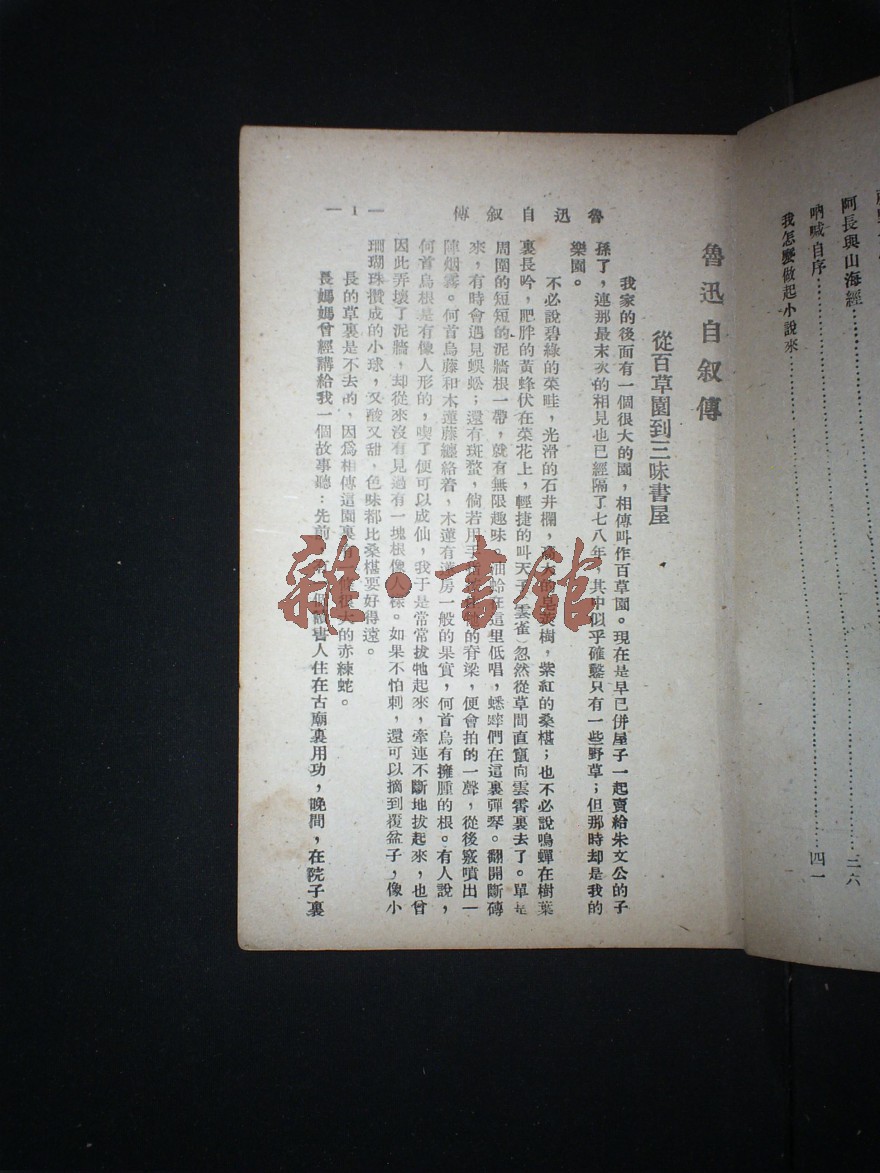 阿長與山海經……三六
吶喊自序……四一
我怎麼做起小說來
魯迅自叙傳
— 1 —
魯迅自叙傳
從百草園到三味書屋
我家的後面有一個很大的園，相傳叫作百草園。現在是早已併屋子一起賣給朱文公的子
孫了，連那最末次的相見也已經隔了七八年，其中似乎確鑿只有一些野草；但那時却是我的
樂園。
不必說碧綠的菜畦，光滑的石井欄，高大的皂莢樹，紫紅的桑椹；也不必說鳴蟬在樹葉
裏長吟，肥胖的黃蜂伏在菜花上，輕捷的叫天子（雲雀）忽然從草間直竄向雲霄裏去了。單是
周圍的短短的泥牆根一帶，就有無限趣味。油蛉在這里低唱，蟋蟀們在這裏彈琴。翻開斷磚
來，有時會遇見蜈蚣；還有斑蝥，倘若用手指的脊梁，便會拍的一聲，從後竅噴出一
陣烟霧。何首烏藤和木蓮藤纏絡着，木蓮有蓮房一般的果實，何首烏有擁腫的根。有人說，
何首烏根是有像人形的，喫了便可以成仙，我于是常常拔牠起來，牽連不斷地拔起來，也曾
因此弄壞了泥牆，却從來沒有見過有一塊根像人樣。如果不怕刺，還可以摘到覆盆子，像小
珊瑚珠攢成的小球，又酸又甜，色味都比桑椹要好得遠。
長的草裏是不去的，因爲相傳這園裏有一條很大的赤練蛇。
長媽媽曾經講給我一個故事聽：先前，有一個讀書人住在古廟裏用功，晚間，在院子裏
雜·書館